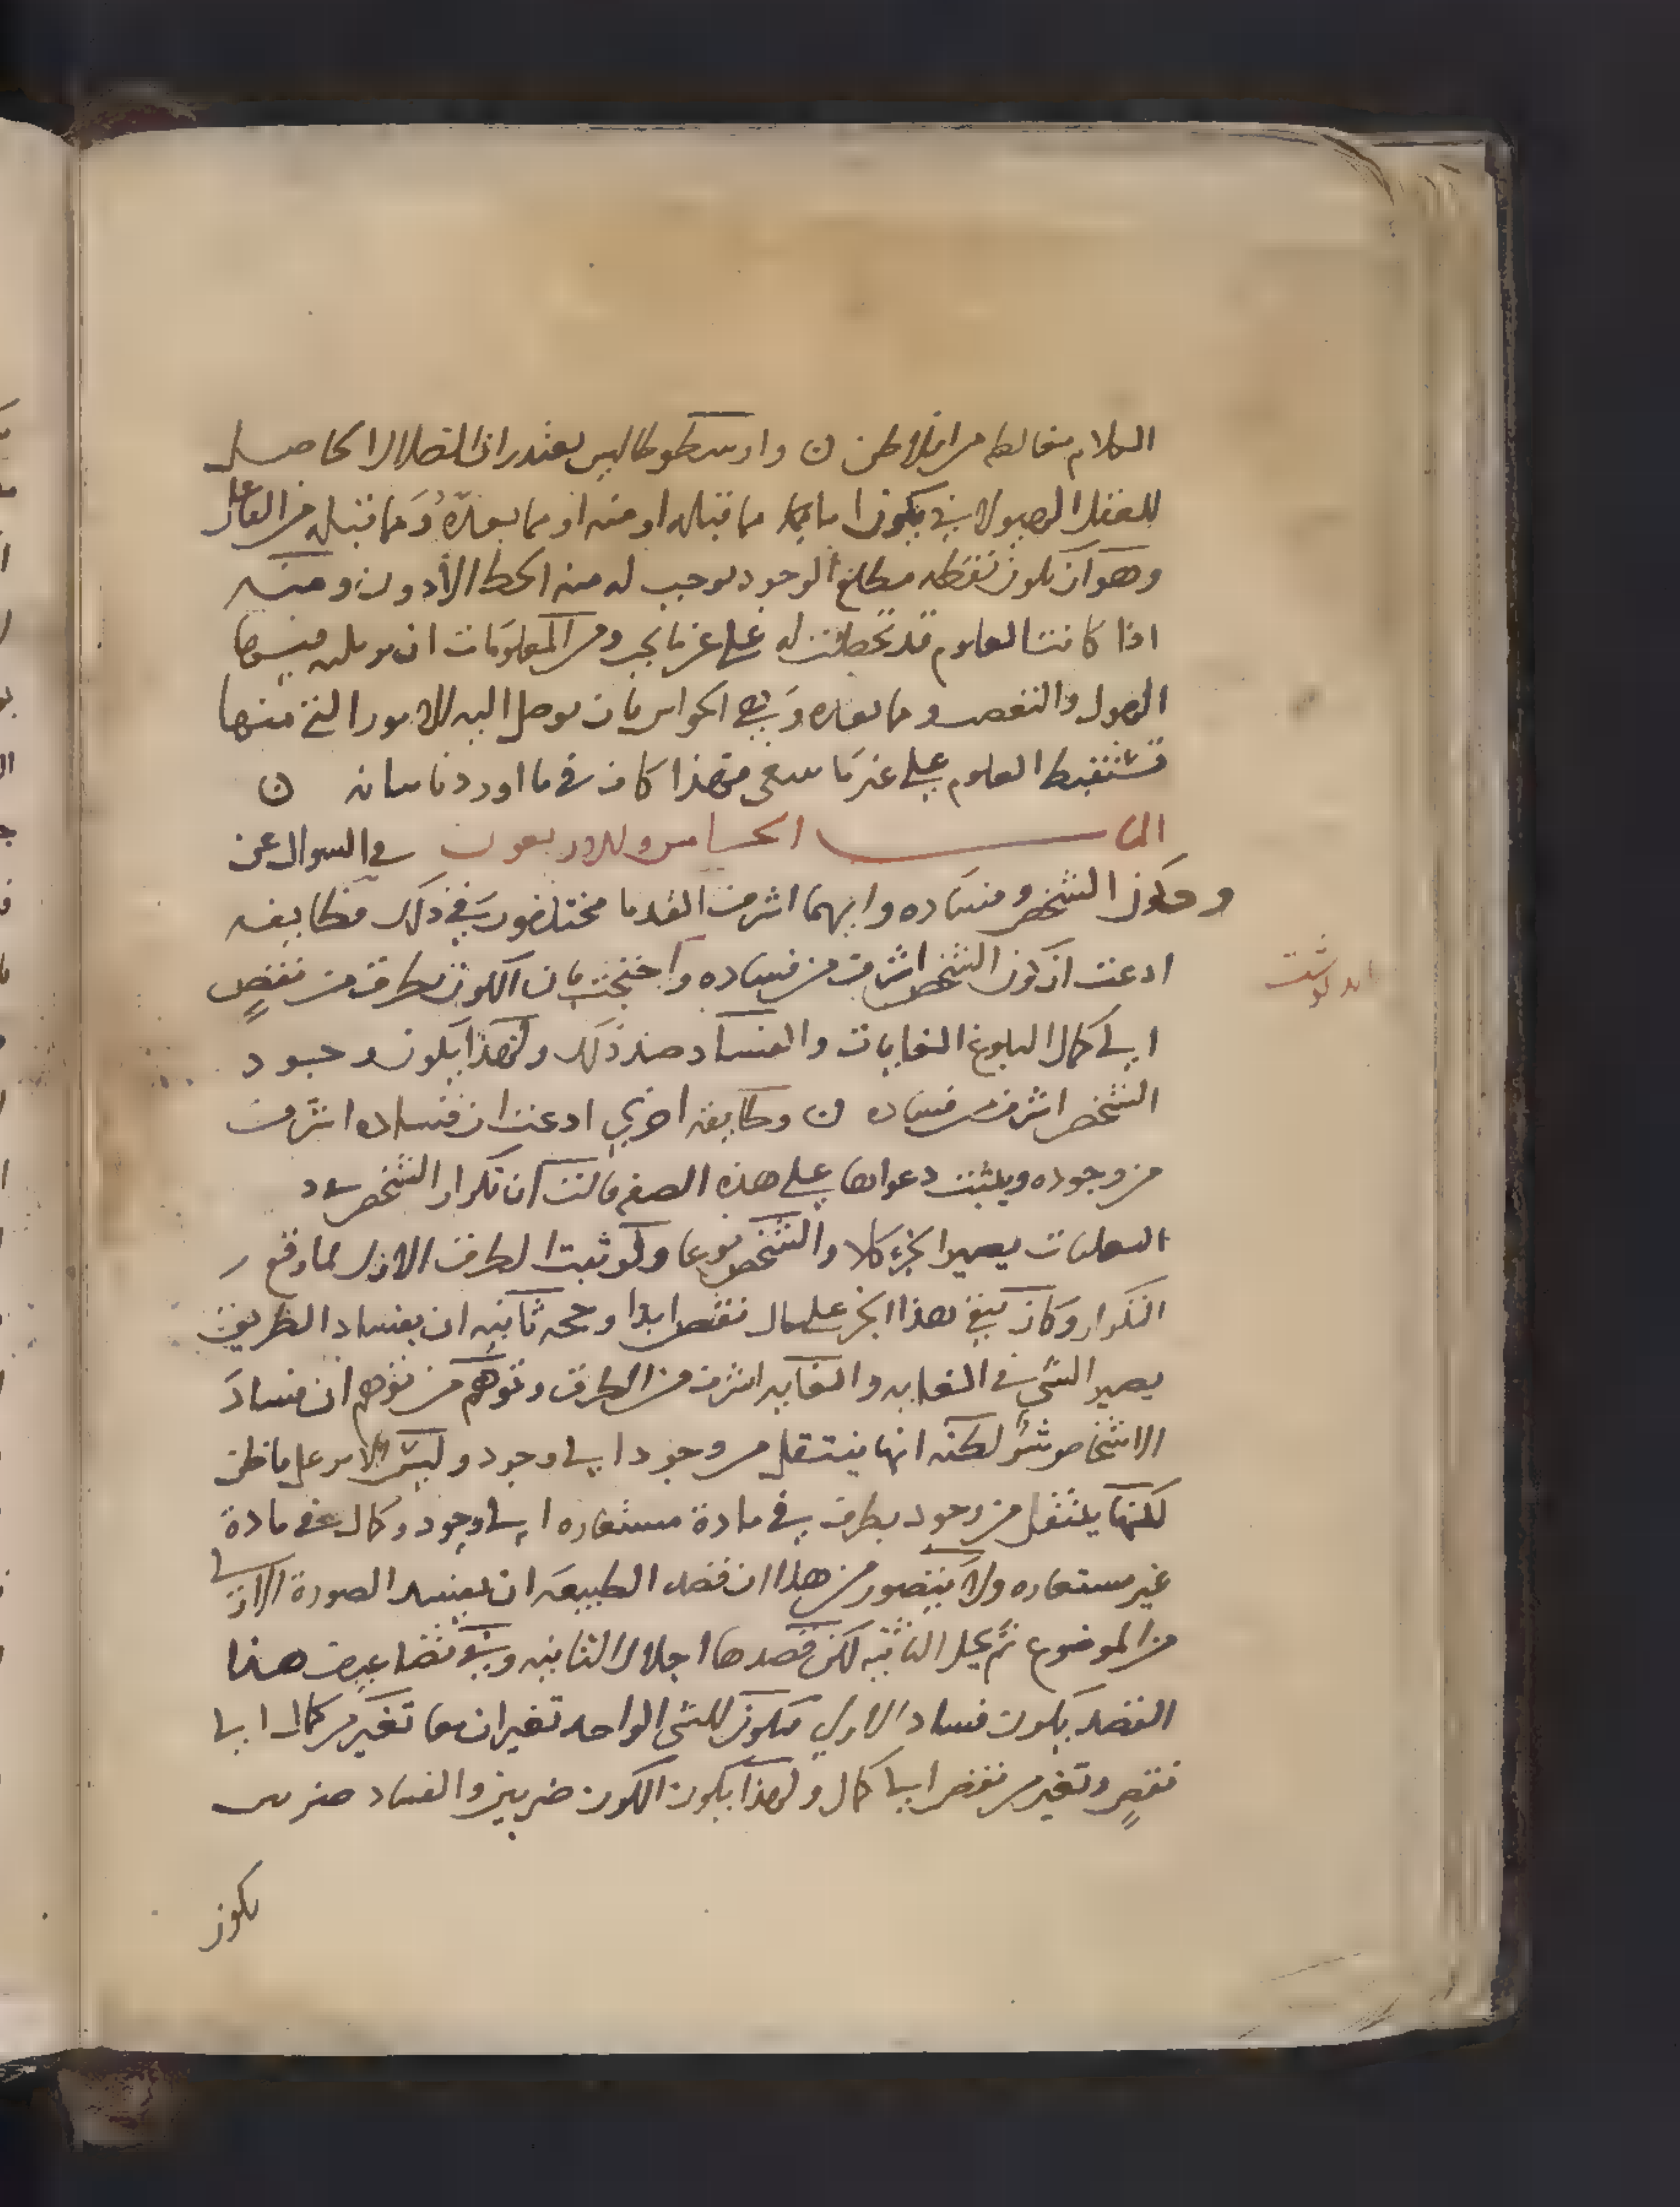 الكلام مغالطه من افلاطن ٥ وارسطوطاليس يعتقد ان الضلال الحاصل
للعقل الهيولاني يكون اما مما قبله او منه او مما بعده ومما قبله من الفاعل
وهو ان يكون نقطه مطلع الوجود يوجب له منه الحط الأدون ومنه
اذا كانت العلوم قد تحصلت له على غير ما يجب ومن المعلومات ان
الهيولى والنقص وما بعده وهي الحواس بان يوصل اليه الامور التي منها
تستنبط العلوم على غير ما ينبغي فهذا كاف في ما اوردنا بيانه ٥
الباب الخامس والاربعون في السوال عن
كون الشخص وفساده وايهما اشرف القدما مختلفون في ذلك فطايفه
ادعت ان كون الشخص اشرف من فساده واحتجت بان الكون يطرق من نقصٍ
الى كمال البلوغ الغايات والفساد ضد ذلك ولهذا يكون وجود
الشخص اشرف من فساده ٥ وطايفه اخرى ادعت ان فساده اشرف
من وجوده ويثبت دعواها على هذه الصفه قالت ان تكرار الشخص
يصير الجزء كلا والشخص نوعا ولو ثبت الطرف الاول لما وقع
التكرار وكان يبقى هذا الجزء على حال نقص ابدا وحجه ثانيه ان بفساد الطريق
يصير الشي في الغايه والغايه اشرف من الطرق وتوهم من توهم ان فساد
الاشخاص شر لكنه انها ينتقل من وجود الى وجود وليس الامر على ما ظن
لكنها ينتقل من وجود يطرق في مادة مستعاره الى وجود وكمال في مادة
غير مستعاره ولا يتصور من هذا ان قصد الطبيعه ان يفسد الصورة الاولى
من الموضوع ثم يحل الثانيه لكن قصدها احلال الثانيه وفي تضاعيف هذا
القصد يكون فساد الاولى فيكون للشي الواحد تغيران معا تغير من كمال الى
نقصٍ وتغير من نقص الى كمال ولهذا يكون الكون ضربين والفساد ضربين
يكون